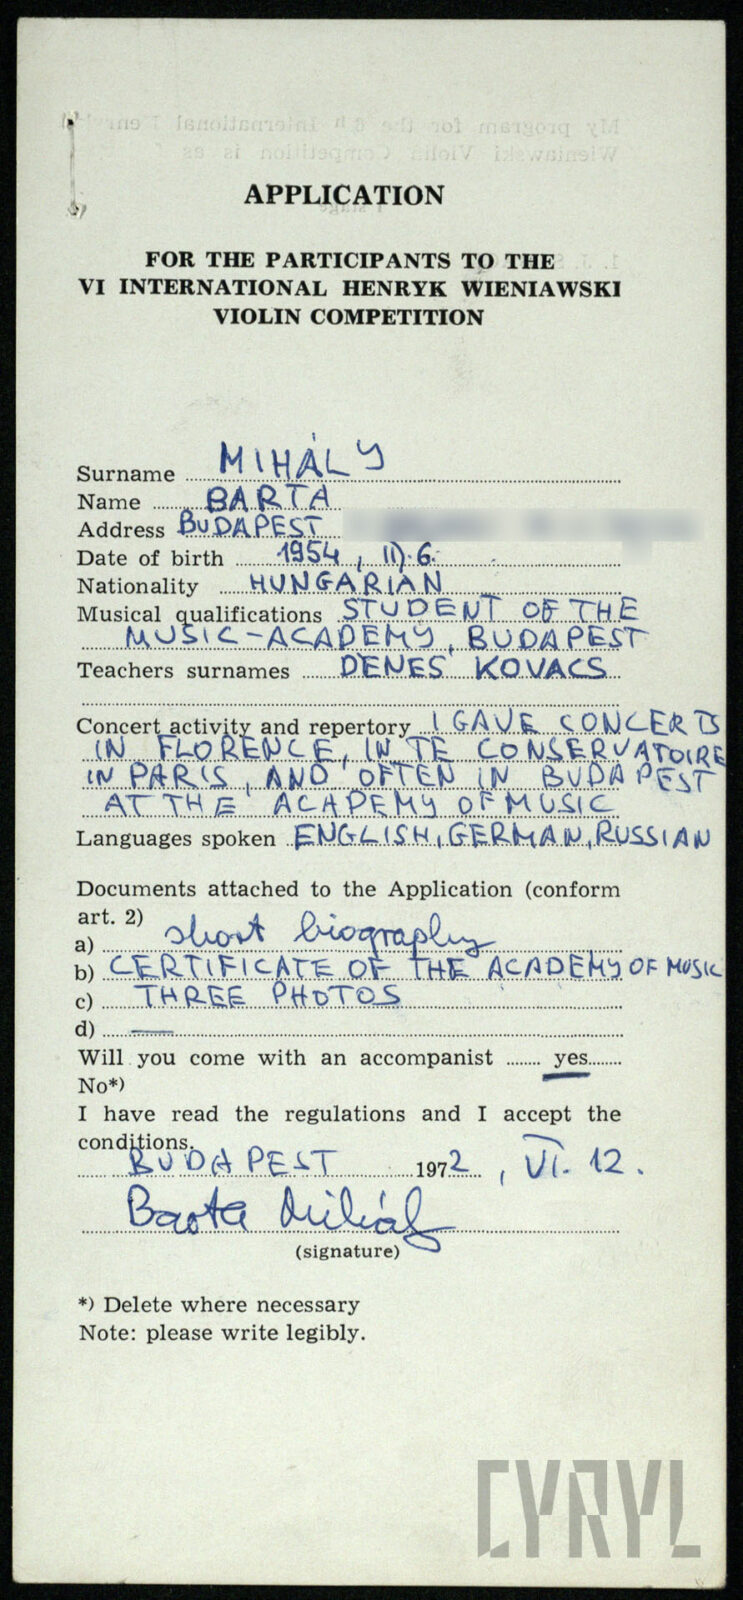 APPLICATION
FOR THE PARTICIPANTS TO THE
VI INTERNATIONAL HENRYK WIENIAWSKI
VIOLIN COMPETITION
Surname MIHÁLY
Name BARTA
Address BUDAPEST
Date of birth 1954, II. 6.
Nationality HUNGARIAN
Musical qualifications STUDENT OF THE
MUSIC-ACADEMY, BUDAPEST
Teachers surnames DENES KOVACS
Concert activity and repertory I GAVE CONCERTS
IN FLORENCE, IN TE CONSERVATOIRE
IN PARIS, AND OFTEN IN BUDAPEST
AT THE ACADEMY OF MUSIC
Languages spoken ENGLISH, GERMAN, RUSSIAN
Documents attached to the Application (conform
art. 2)
a) short biography
b) CERTIFICATE OF THE ACADEMY OF MUSIC
c) THREE PHOTOS
d) —
Will you come with an accompanist yes
No*)
I have read the regulations and I accept the
conditions.
BUDAPEST 1972, VI. 12.
Barta Mihály
(signature)
*) Delete where necessary
Note: please write legibly.
CYRYL